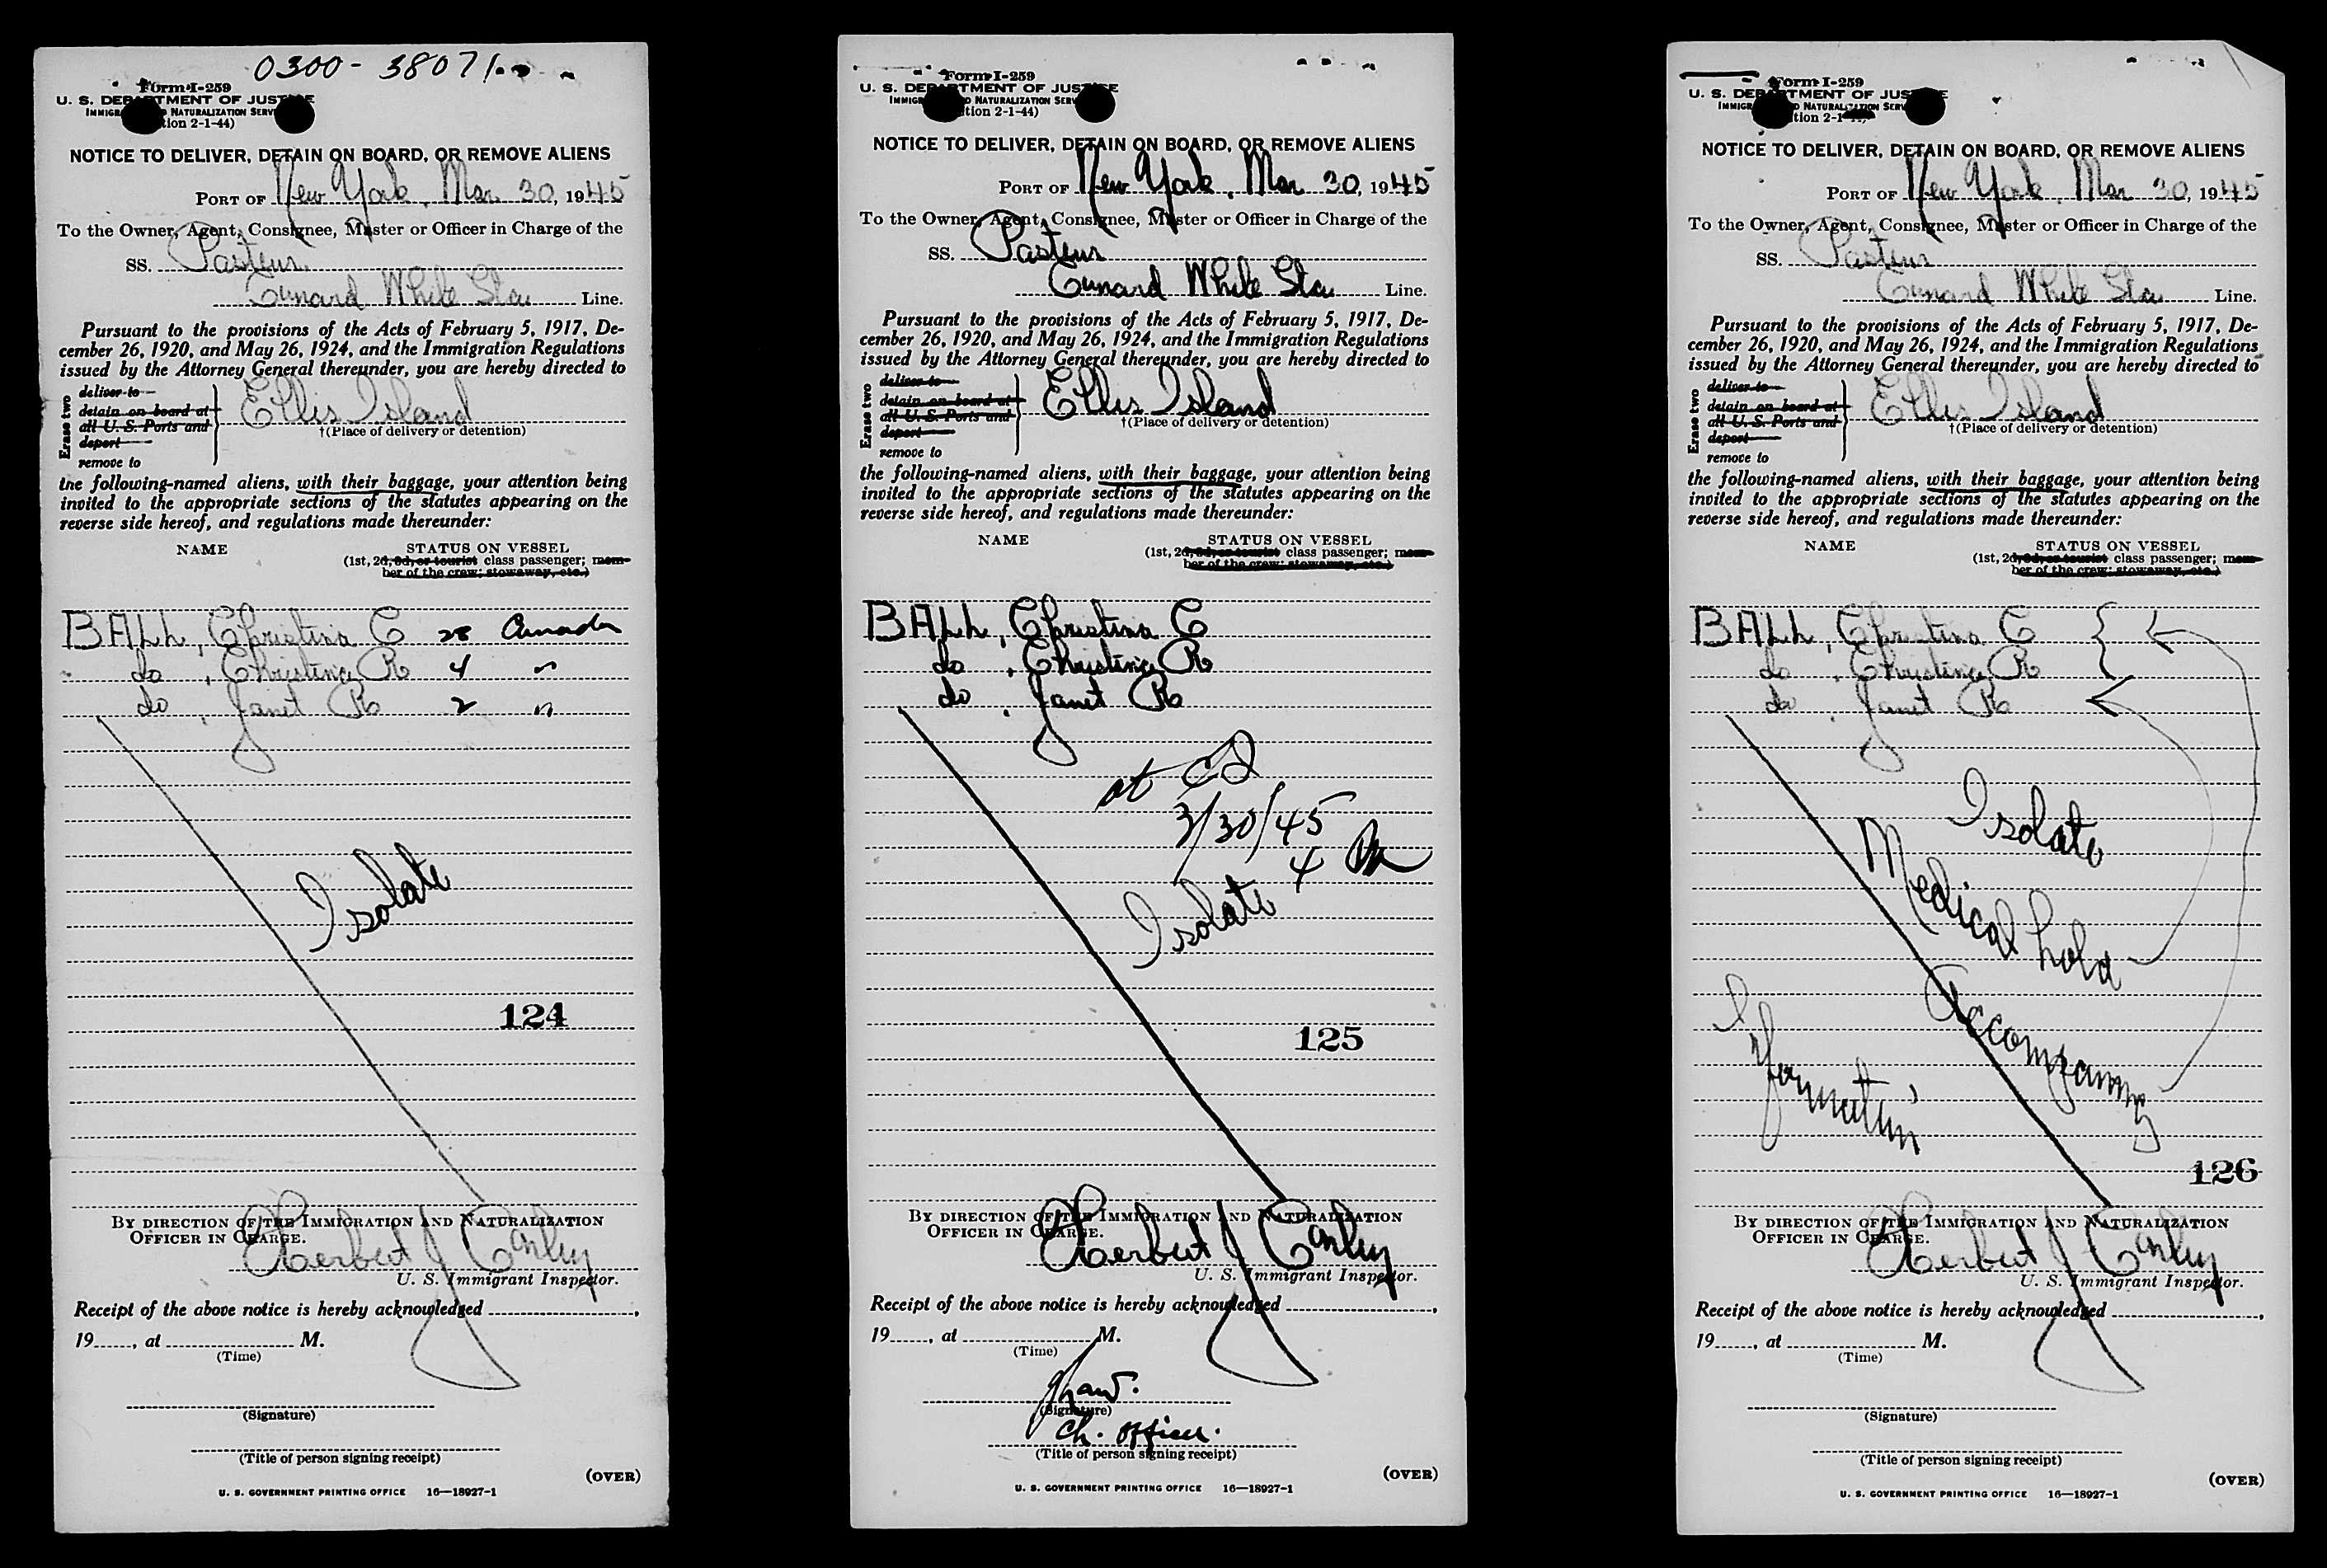 0300-38071
Form I-259
U. S. DEPARTMENT OF JUSTICE
IMMIGRATION AND NATURALIZATION SERVICE
(Edition 2-1-44)
NOTICE TO DELIVER, DETAIN ON BOARD, OR REMOVE ALIENS
PORT OF New York, Mar. 30, 1945
To the Owner, Agent, Consignee, Master or Officer in Charge of the
SS. Pasteur
Cunard White Star Line.
Pursuant to the provisions of the Acts of February 5, 1917, De-
cember 26, 1920, and May 26, 1924, and the Immigration Regulations
issued by the Attorney General thereunder, you are hereby directed to
Erase two
deliver to
detain on board at
all U. S. Ports and
deport
remove to
Ellis Island
†(Place of delivery or detention)
the following-named aliens, with their baggage, your attention being
invited to the appropriate sections of the statutes appearing on the
reverse side hereof, and regulations made thereunder:
NAME STATUS ON VESSEL
(1st, 2d, 3d, or tourist class passenger; mem-
ber of the crew; stowaway, etc.)
BALL, Christina C 28 Canada
do, Christina R 4 "
do, Janet R 2 "
Isolate
124
BY DIRECTION OF THE IMMIGRATION AND NATURALIZATION
OFFICER IN CHARGE.
Herbert J
U. S. Immigrant Inspector.
Receipt of the above notice is hereby acknowledged
19, at M.
(Time)
(Signature)
(Title of person signing receipt)
(OVER)
U. S. GOVERNMENT PRINTING OFFICE 16—18927-1
Form I-259
U. S. DEPARTMENT OF JUSTICE
IMMIGRATION AND NATURALIZATION SERVICE
(Edition 2-1-44)
NOTICE TO DELIVER, DETAIN ON BOARD, OR REMOVE ALIENS
PORT OF New York, Mar 30, 1945
To the Owner, Agent, Consignee, Master or Officer in Charge of the
SS. Pasteur
Cunard White Star Line.
Pursuant to the provisions of the Acts of February 5, 1917, De-
cember 26, 1920, and May 26, 1924, and the Immigration Regulations
issued by the Attorney General thereunder, you are hereby directed to
Erase two
deliver to
detain on board at
all U. S. Ports and
deport
remove to
Ellis Island
†(Place of delivery or detention)
the following-named aliens, with their baggage, your attention being
invited to the appropriate sections of the statutes appearing on the
reverse side hereof, and regulations made thereunder:
NAME STATUS ON VESSEL
(1st, 2d, 3d, or tourist class passenger; mem-
ber of the crew; stowaway, etc.)
BALL, Christina C
do, Christina R
do, Janet R
at
3/30/45
4
Isolate
125
BY DIRECTION OF THE IMMIGRATION AND NATURALIZATION
OFFICER IN CHARGE.
Herbert J
U. S. Immigrant Inspector.
Receipt of the above notice is hereby acknowledged
19, at M.
(Time)
(Signature)
Ch. Officer.
(Title of person signing receipt)
(OVER)
U. S. GOVERNMENT PRINTING OFFICE 16—18927-1
Form I-259
U. S. DEPARTMENT OF JUSTICE
IMMIGRATION AND NATURALIZATION SERVICE
(Edition 2-1-44)
NOTICE TO DELIVER, DETAIN ON BOARD, OR REMOVE ALIENS
PORT OF New York, Mar 30, 1945
To the Owner, Agent, Consignee, Master or Officer in Charge of the
SS. Pasteur
Cunard White Star Line.
Pursuant to the provisions of the Acts of February 5, 1917, De-
cember 26, 1920, and May 26, 1924, and the Immigration Regulations
issued by the Attorney General thereunder, you are hereby directed to
Erase two
deliver to
detain on board at
all U. S. Ports and
deport
remove to
Ellis Island
†(Place of delivery or detention)
the following-named aliens, with their baggage, your attention being
invited to the appropriate sections of the statutes appearing on the
reverse side hereof, and regulations made thereunder:
NAME STATUS ON VESSEL
(1st, 2d, 3d, or tourist class passenger; mem-
ber of the crew; stowaway, etc.)
BALL, Christina C
do, Christina R
do, Janet R
Isolate
Medical hold
Accompanying
Information
126
BY DIRECTION OF THE IMMIGRATION AND NATURALIZATION
OFFICER IN CHARGE.
Herbert J
U. S. Immigrant Inspector.
Receipt of the above notice is hereby acknowledged
19, at M.
(Time)
(Signature)
(Title of person signing receipt)
(OVER)
U. S. GOVERNMENT PRINTING OFFICE 16—18927-1